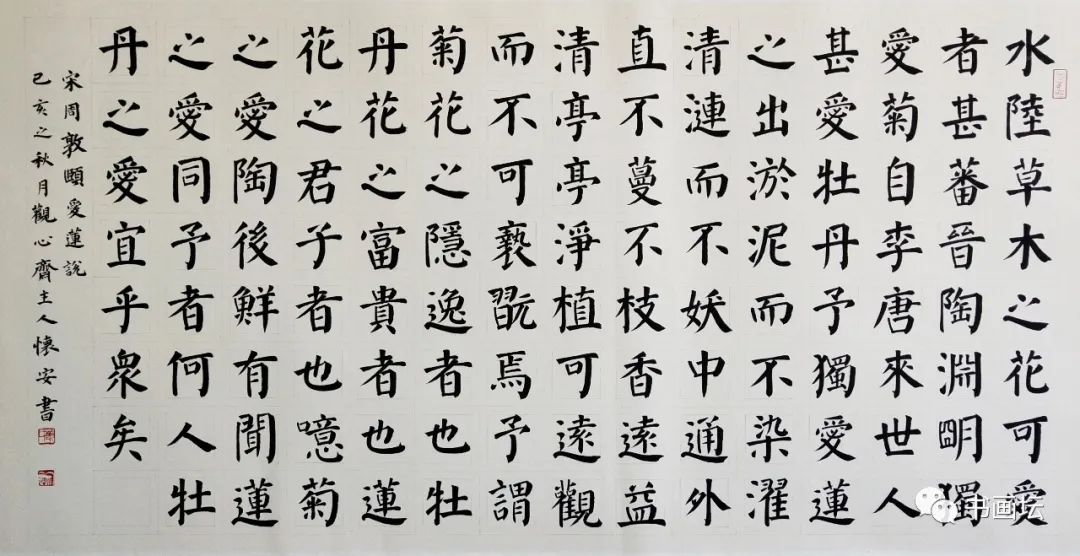 水陸草木之花可愛
者甚蕃晉陶淵明獨
愛菊自李唐來世人
甚愛牡丹予獨愛蓮
之出淤泥而不染濯
清漣而不妖中通外
直不蔓不枝香遠益
清亭亭淨植可遠觀
而不可褻翫焉予謂
菊花之隱逸者也牡
丹花之富貴者也蓮
花之君子者也噫菊
之愛陶後鮮有聞蓮
之愛同予者何人牡
丹之愛宜乎衆矣
宋周敦頤愛蓮說
己亥之秋月觀心齋主人懷安書
书画坛